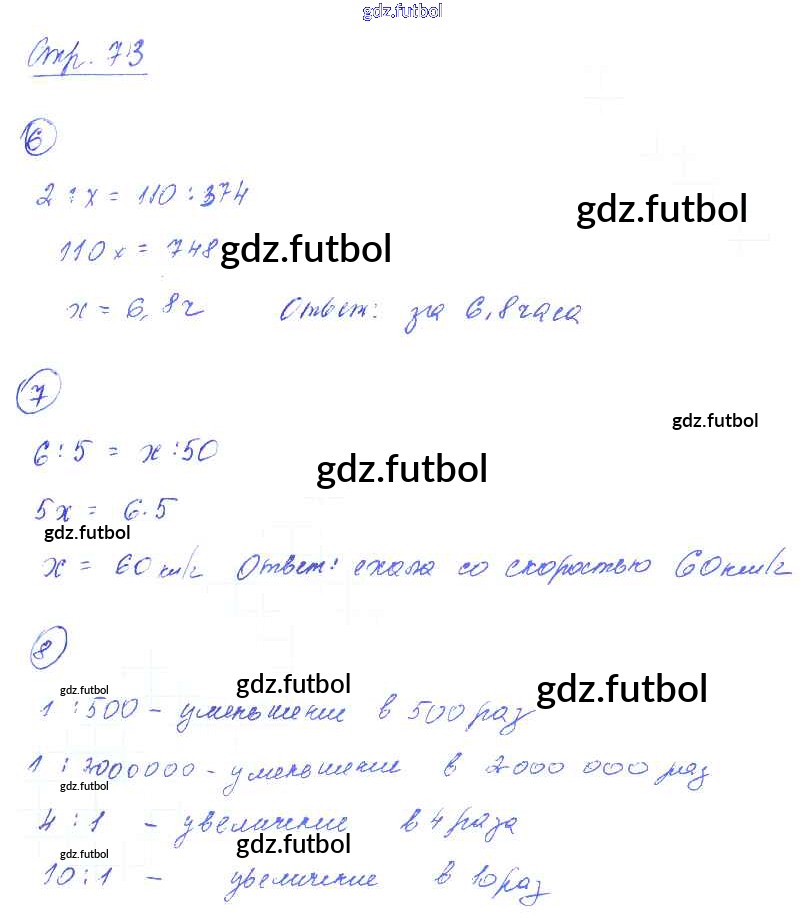 gdz.futbol
Стр. 73
6
2 : x = 110 : 374
gdz.futbol
110x = 748
gdz.futbol
x = 6,8ч Ответ: за 6,8 часа
7
gdz.futbol
6 : 5 = x : 50
gdz.futbol
5x = 6·5
gdz.futbol
x = 60 км/ч Ответ: ехала со скоростью 60 км/ч
8
gdz.futbol gdz.futbol gdz.futbol
1 : 500 - уменьшение в 500 раз
1 : 2000000 - уменьшение в 2000 000 раз
gdz.futbol
4 : 1 - увеличение в 4 раза
gdz.futbol gdz.futbol
10 : 1 - увеличение в 10 раз